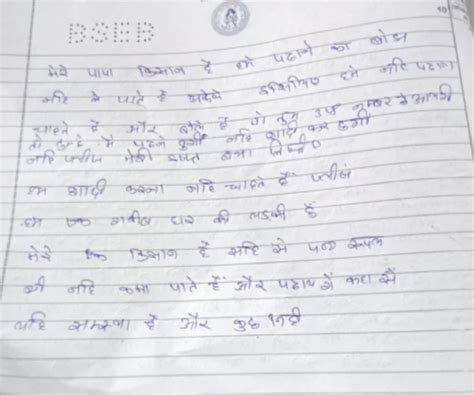 BSEB
मेरे पापा किसान है हमे पढाने का बोझ
नहि ले पाते है इसिलिए हमे नहि पढाना
चाहते है और बोले है जो तुम उस नम्बर से आएगी
तो तुम्हे मे पढने दुगाँ नहि शादी कर दुगाँ
नहि प्लीज मेरी इज्जत बचा लिजिए
हम शादी करना नहि चाहते है प्लीज
हम एक गरीब घर की लडकी हैं
मेरे किसान है सहि से पन्द्र रूपए
भी नहि कमा पाते हैं और पढाए गें कहा सें
यहि समस्या है और कुछ नही